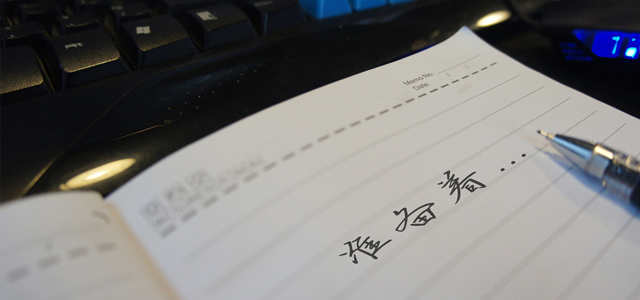 Memo No.
Date / /
准备着...